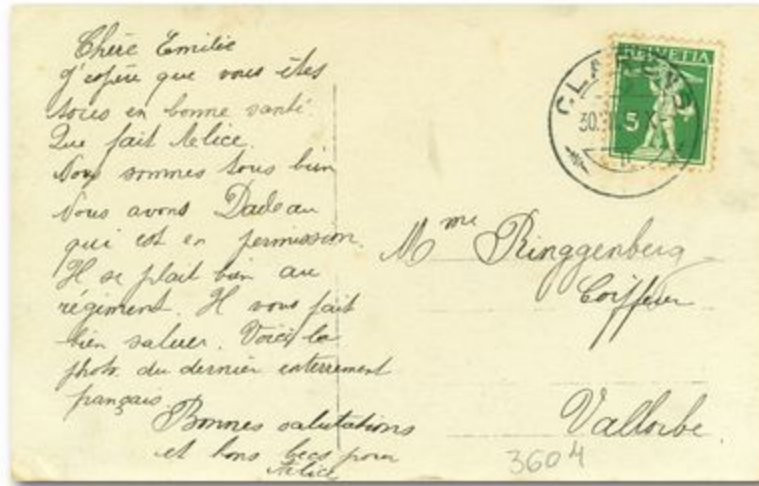 Chère Emilie
J'espère que vous êtes
tous en bonne santé.
Que fait Alice.
Nous sommes tous bien
Nous avons Dadeau
qui est en permission.
Il se plait bien au
régiment. Il vous fait
bien saluer. Voici la
photo du dernier enterrement
français.
Bonnes salutations
et bons becs pour
Alice
HELVETIA
5
CLARENS
30.
Mme Ringgenberg
Coiffeur
Vallorbe.
3604